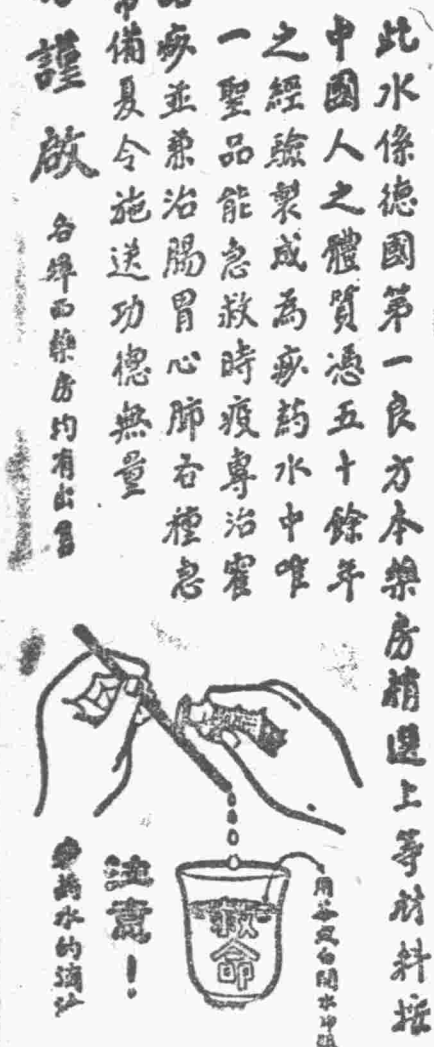 此水係德國第一良方本藥房精選上等材料按
中國人之體質憑五十餘年
之經驗製成為痧藥水中唯
一聖品能急救時疫專治霍
痧並兼治腸胃心肺各種急
備夏令施送功德無量
謹啟
各埠西藥房均有出售
用茶或白開水冲服
救命
注意!
藥水的滴法